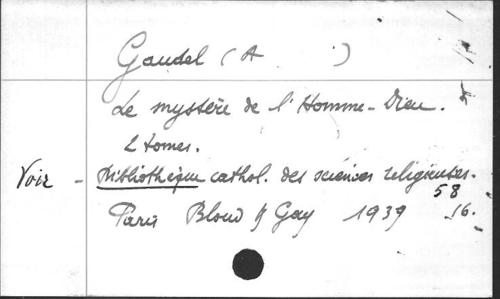 Gaudel (A )
Le mystère de l'Homme-Dieu.
2 tomes.
Voir - Bibliothèque cathol. des sciences religieuses.
58
Paris Bloud & Gay 1939 16.